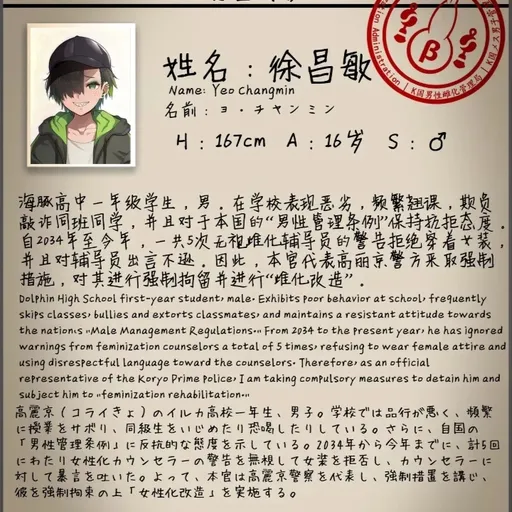 姓名：徐昌敏
Name: Yeo changmin
名前：ヨ・チャンミン
H：167cm A：16岁 S：♂
海豚高中一年级学生，男。在学校表现恶劣，频繁翘课，欺负
敲诈同班同学，并且对于本国的“男性管理条例”保持抗拒态度。
自2034年至今年，一共5次无视雌化辅导员的警告拒绝穿着女装，
并且对辅导员出言不逊。因此，本官代表高丽京警方采取强制
措施，对其进行强制拘留并进行“雌化改造”。
Dolphin High School first-year student, male. Exhibits poor behavior at school, frequently
skips classes, bullies and extorts classmates, and maintains a resistant attitude towards
the nation's "Male Management Regulations." From 2034 to the present year, he has ignored
warnings from feminization counselors a total of 5 times, refusing to wear female attire and
using disrespectful language toward the counselors. Therefore, as an official
representative of the Koryo Prime Police, I am taking compulsory measures to detain him and
subject him to "feminization rehabilitation."
高麗京（コライきょ）のイルカ高校一年生、男子。学校では品行が悪く、頻繁
に授業をサボり、同級生をいじめたり恐喝したりしている。さらに、自国の
「男性管理条例」に反抗的な態度を示している。2034年から今年までに、計5回
にわたり女性化カウンセラーの警告を無視して女装を拒否し、カウンセラーに
対して暴言を吐いた。よって、本官は高麗京警察を代表し、強制措置を講じ、
彼を強制拘束の上「女性化改造」を実施する。